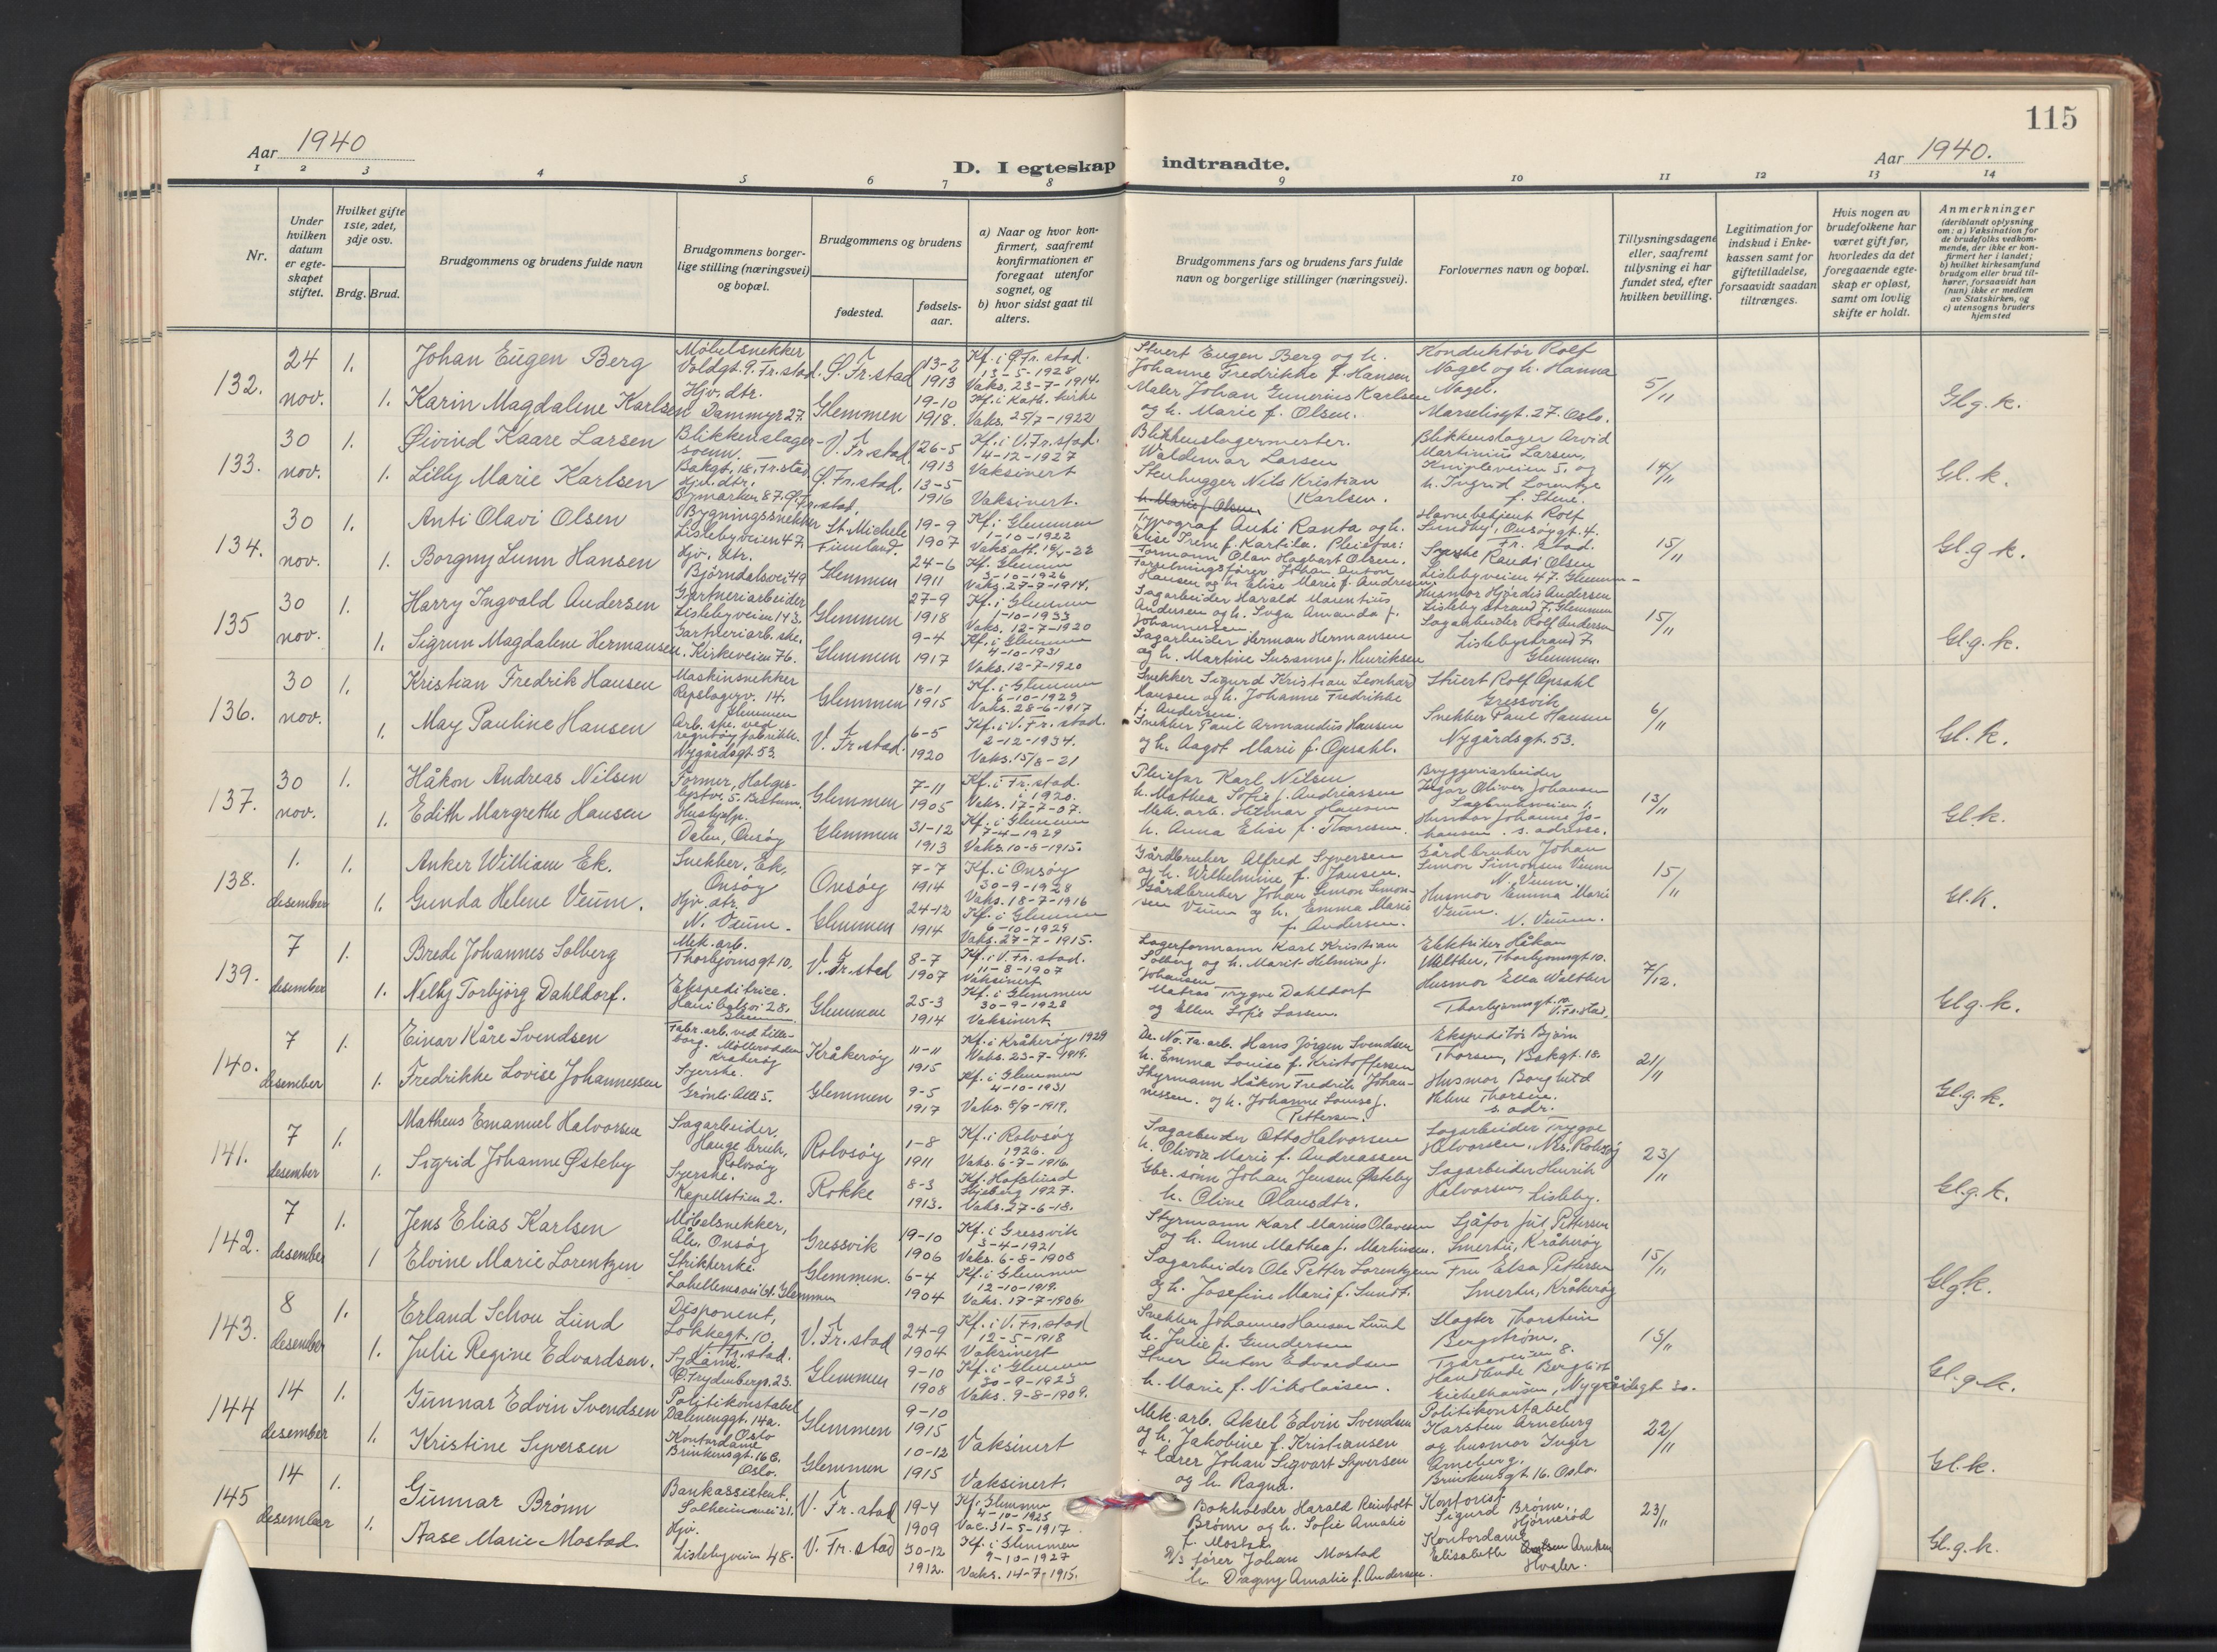 115
Aar 1940
D. I egteskap indtraadte.
Aar 1940.
1 2 3 4 5 6 7 8 9 10 11 12 13 14
Nr.
Under hvilken datum er egte-skapet stiftet.
Hvilket gifte 1ste, 2det, 3dje osv.
Brdg. Brud.
Brudgommens og brudens fulde navn
Brudgommens borger-lige stilling (næringsvei) og bopæl.
Brudgommens og brudens
fødested.
fødsels-aar.
a) Naar og hvor kon-firmert, saafremt konfirmationen er foregaat utenfor sognet, og
b) hvor sidst gaat til alters.
Brudgommens fars og brudens fars fulde navn og borgerlige stillinger (næringsvei).
Forlovernes navn og bopæl.
Tillysningsdagene eller, saafremt tillysning ei har fundet sted, efter hvilken bevilling.
Legitimation for indskud i Enke-kassen samt for giftetilladelse, forsaavidt saadan tiltrænges.
Hvis nogen av brudefolkene har været gift før, hvorledes da det foregaaende egte-skap er opløst, samt om lovlig skifte er holdt.
Anmerkninger (deriblandt oplysning om: a) Vaksination for de brudefolks vedkom-mende, der ikke er kon-firmert her i landet; b) hvilket kirkesamfund brudgom eller brud til-hører, forsaavidt han (hun) ikke er medlem av Statskirken, og c) utensogns bruders hjemsted
132. 24 nov. 1. Johan Eugen Berg
Møbelsnekker Voldgt. 9. Fr.stad. Ø. Fr.stad 13-2 1913
Kf. i Ø. Fr.stad. 13-5-1928 Vaks. 23-7-1914.
Stuert Eugen Berg og h. Johanne Fredrikke f. Hansen
Konduktör Rolf Nagel og h. Hanna Nagel. Marselisgt. 27. Oslo.
5/11 Gl.g.k.
1. Karin Magdalene Karlsen
Hjv. dtr. Dammyr 27. Glemmen 19-10 1918.
Kf. i Kath. kirke Vaks. 25/7-1922
Maler Johan Gunerius Karlsen og h. Marie f. Olsen.
133. 30 nov. 1. Øivind Kaare Larsen
Blikkenslager-svenn. Bakgt. 18. Fr.stad V. Fr.stad 26-5 1913
Kf. i V. Fr.stad. 4-12-1927 Vaksinert
Blikkenslagermester. Waldemar Larsen
Blikkenslager Arvid Martinius Larsen, Knipleveien 5. og h. Ingrid Lorentze f. Stene.
14/11 Gl. k.
1. Lilly Marie Karlsen
Hjv. dtr. Ø. Fr.stad. 13-5 1916
Vaksinert.
Stenhugger Nils Kristian Karlsen.
134. 30 nov. 1. Anti Olavi Olsen
Bygningssnekker Lislebyveien 47. St. Michele Finnland. 19-9 1907
Kf. i Glemmen 1-10-1922
Typograf Anti Ranta og h. Elise Irene f. Kartila. Pleiefar: Formann Olav Hagbart Olsen.
Havnebetjent Rolf Sundby, Onsøygt. 4. Fr. stad. Syerske Randi Olsen Lislebyveien 47. Glemmen
15/11 Gl.g k.
1. Borgny Lunn Hansen
Hjv. dtr. Björndalsvei 49 Glemmen 24-6 1911
Kf. Glemmen 3-10-1926 Vaks. 27-7-1914.
Forretningsfører Johan Anton Hansen og h. Elise Marie f. Andresen
135 30 nov. 1. Harry Ingvald Andersen
Gartneriarbeider Lislebyveien 143. Glemmen 27-9 1918
Kf. i Glemmen 1-10-1933 Vaks. 12-7-1920
Sagarbeider Harald Marentius Andersen og h. Inga Amanda f. Johannessen
Husmor Hjördis Andersen Lisleby strand 7. Glemmen Sagarbeider Rolf Andersen Lislebystrand 7. Glemmen.
15/11 Gl.g.k.
1. Sigrun Magdalene Hermansen
Gartneriarb. ske. Kirkeveien 76. Glemmen 9-4 1917
Kf. i Glemmen 4-10-1931 Vaks. 12-7-1920
Sagarbeider Herman Hermansen og h. Martine Susanne f. Henriksen
136. 30 nov. 1. Kristian Fredrik Hansen
Maskinsnekker Repslagerv. 14. Glemmen Glemmen 18-1 1915
Kf. i Glemmen 6-10-1929 Vaks. 28-6-1917
Snekker Sigurd Kristian Leonhard Hansen og h. Johanne Fredrikke f. Andersen.
Stuert Rolf Opsahl Gressvik Snekker Paul Hansen Nygårdsgt. 53.
6/11 Gl. k.
1. May Pauline Hansen
Arb. ske. ved regntøyfabrikk. Nygårdsgt 53. V. Fr.stad. 6-5 1920
Kf. i V. Fr.stad. 2-12-1934. Vaks. 15/8-21
Snekker Paul Armandus Hansen og h. Aagot Marie f. Opsahl.
137. 30 nov. 1. Håkon Andreas Nilsen
Former, Glemmen 7-11 1905
Kf. i Fr.stad. i 1920. Vaks. 17-7-07.
Pleiefar Karl Nilsen h. Mathea Sofie f. Andreassen
Bryggeriarbeider Oliver Johansen Husmor Johanne Johansen. s. adresse.
13/11 Gl.k.
1. Edith Margrethe Hansen
Hushjelp. Dalen, Onsøy Glemmen 31-12 1913
Kf. i Glemmen 7-4-1929 Vaks. 10-8-1915.
Mek. arb. Hilmar Hansen h. Anna Elise f. Thoresen.
138. 1. desember 1. Anker William Ek.
Snekker, Ek, Onsöy Onsöy 7-7 1914
Kf. i Onsöy 30-9-1928 Vaks. 18-7-1916
Gårdbruker Alfred Syversen og h. Wilhelmine f. Jansen.
Gårdbruker Johan Simon Simonsen Veum N. Veum. Husmor Emma Marie Veum. N. Veum.
15/11 Gl.K.
1. Gunda Helene Veum.
Hjv. dtr. N. Veum. Glemmen 24-12 1914
Kf. i Glemmen 6-10-1929 Vaks. 27-7-1915.
Gårdbruker Johan Simon Simon-sen Veum og h. Emma Marie f. Andersen.
139. 7 desember 1. Brede Johannes Solberg
Mek. arb. Thorbjørnsgt 10, V. Fr.stad 8-7 1907
Kf. i V. Fr.stad. 11-8-1907 Vaksinert
Lagerformann Karl Kristian Solberg og h. Marit Helmine f. Johansen
Elektriker Håkon Walther, Thorbjørnsgt 10. Husmor Ella Walther Thorbjørnsgt. 10. V. Fr.stad.
7/12. Gl g. k.
1. Nelly Torbjörg Dahldorf.
Ekspeditrice. Hanibalsvei 28. Glemmen Glemmen 25-3 1914
Kf. i Glemmen 30-9-1928 Vaksinert
Matros Trygve Dahldorf og Ellen Sofie Larsen.
140. 7 desember 1. Einar Kåre Svendsen
Fabr. arb. ved Lille-borg. Møllerodden Kråkerøy Kråkerøy 11-11 1915
Kf. i Kråkerøy 1929 Vaks. 23-7-1919.
De. No. Fa. arb. Hans Jörgen Svendsen h. Emma Louise f. Kristoffersen
Ekspeditör Bjørn Thorsen, Bakgt. 18. Husmor Borghild Helene Thorsen. s. adr.
21/11 Gl.g.k.
1. Fredrikke Lovise Johannessen
Syerske. Grönli Allé 5. Glemmen 9-5 1917
Kf. i Glemmen 4-10-1931 Vaks. 8/9-1919.
Styrmann Håkon Fredrik Johan-nessen. og h. Johanne Louise f. Pettersen.
141. 7 desember 1. Matheus Emanuel Halvorsen
Sagarbeider, Hauge bruk, Rolvsöy Rolvsöy 1-8 1911
Kf. i Rolvsöy 1926. Vaks. 6-7-1916.
Sagarbeider Otto Halvorsen h. Olivia Marie f. Andreassen
Sagarbeider Trygve Halvorsen, Rolvsöy Sagarbeider Henrik Halvorsen, Lisleby.
23/11 Gl.g.k.
1. Sigrid Johanne Østeby
Syerske. Kapellstien 2. Rokke 8-3 1913.
Kf. Hafslund Skjeberg 1927. Vaks. 27-6-18.
Gbr. sønn Johan Jensen Østeby h. Oline Olausdtr.
142. 7 desember 1. Jens Elias Karlsen
Møbelsnekker, Ale, Onsøy Gressvik 19-10 1906
Kf. i Gressvik 3-4-1921 Vaks. 6-8-1908
Styrmann Karl Marius Olavesen og h. Anne Mathea f. Martinsen.
Sjåfør Jul Pettersen Smertu, Kråkerøy Fru Elsa Pettersen Smertu, Kråkerøy
15/11 Gl g k.
1 Elvine Marie Lorentzen
Strikkerske. Glemmen Glemmen. 6-4 1904
Kf. i Glemmen 12-10-1919. Vaks. 17-7-1906.
Sagarbeider Ole Petter Lorentzen og h. Josefine Marie f. Lundt.
143. 8 desember 1. Erland Schou Lund
Disponent, Løkkegt. 10. V. Fr.stad. V. Fr.stad 24-9 1904
Kf. i V. Fr.stad 12-5-1918 Vaksinert
Snekker Johannes Hansen Lund h. Julie f. Gundersen
Slagter Thorstein Bergström. Traraveien 8.
15/11 Gl.g.k.
1. Julie Regine Edvardsen.
Sydame. Ø. Frydenbergs. 23. Glemmen 9-10 1908
Kf. i Glemmen 30-9-1923 Vaks. 9-8-1909.
Stuer Anton Edvardsen h. Marie f. Nikolaisen.
144 14 desember 1. Gunnar Edvin Svendsen
Politikonstabel Dalenenggt. 14a. Oslo Glemmen 9-10 1915
Vaksinert
Mek. arb. Aksel Edvin Svendsen og h. Jakobine f. Kristiansen
Politikonstabel Karsten Arneberg og husmor Inger Arneberg. Brinkensgt. 16. Oslo.
22/11 Gl.k.
1. Kristine Syversen
Kontordame Brinkensgt. 16 C. Oslo. Glemmen 10-12 1915
Vaksinert.
+ Lærer Johan Sigvart Syversen og h. Ragna.
145 14 desember 1. Gunnar Brønn
Bankassistent. Solheimsvei 21. V. Fr.stad 19-4 1909
Kf. Glemmen 4-10-1925 Vac. 31-5-1917.
Bokholder Harald Reinholt Brønn og h. Sofie Amalie
Kontorist Sigurd Brønn. Hjørnerød Kontordame Elisabeth Arntsen Hvaler.
23/11 Gl.g.k.
1. Aase Marie Mostad.
Hjv. Lislebyveien 48. V. Fr.stad 30-12 1912.
Kf. i Glemmen 9-10-1927 Vaks. 14-7-1915.
D/S fører Johan Mostad h. Dagny Amalie f. Andersen.